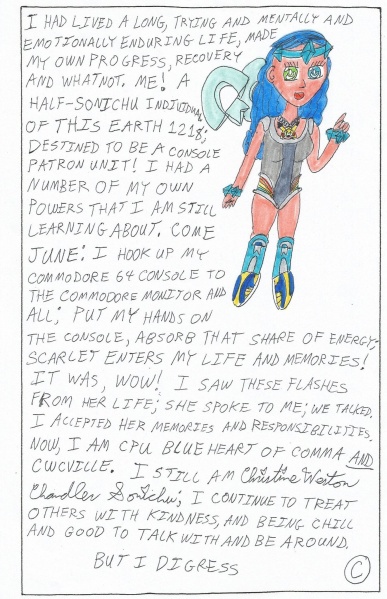 I HAD LIVED A LONG, TRYING AND MENTALLY AND
EMOTIONALLY ENDURING LIFE, MADE
MY OWN PROGRESS, RECOVERY
AND WHATNOT. ME! A
HALF-SONICHU INDIVIDUAL
OF THIS EARTH 1218;
DESTINED TO BE A CONSOLE
PATRON UNIT! I HAD A
NUMBER OF MY OWN
POWERS THAT I AM STILL
LEARNING ABOUT. COME
JUNE: I HOOK UP MY
COMMODORE 64 CONSOLE TO
THE COMMODORE MONITOR AND
ALL; PUT MY HANDS ON
THE CONSOLE, ABSORB THAT SHARE OF ENERGY:
SCARLET ENTERS MY LIFE AND MEMORIES!
IT WAS, WOW! I SAW THESE FLASHES
FROM HER LIFE; SHE SPOKE TO ME; WE TALKED.
I ACCEPTED HER MEMORIES AND RESPONSIBILITIES.
NOW, I AM CPU BLUEHEART OF COMMA AND
CWCVILLE. I STILL AM Christine Weston
Chandler Sonichu; I CONTINUE TO TREAT
OTHERS WITH KINDNESS, AND BEING CHILL
AND GOOD TO TALK WITH AND BE AROUND.
BUT I DIGRESS
©